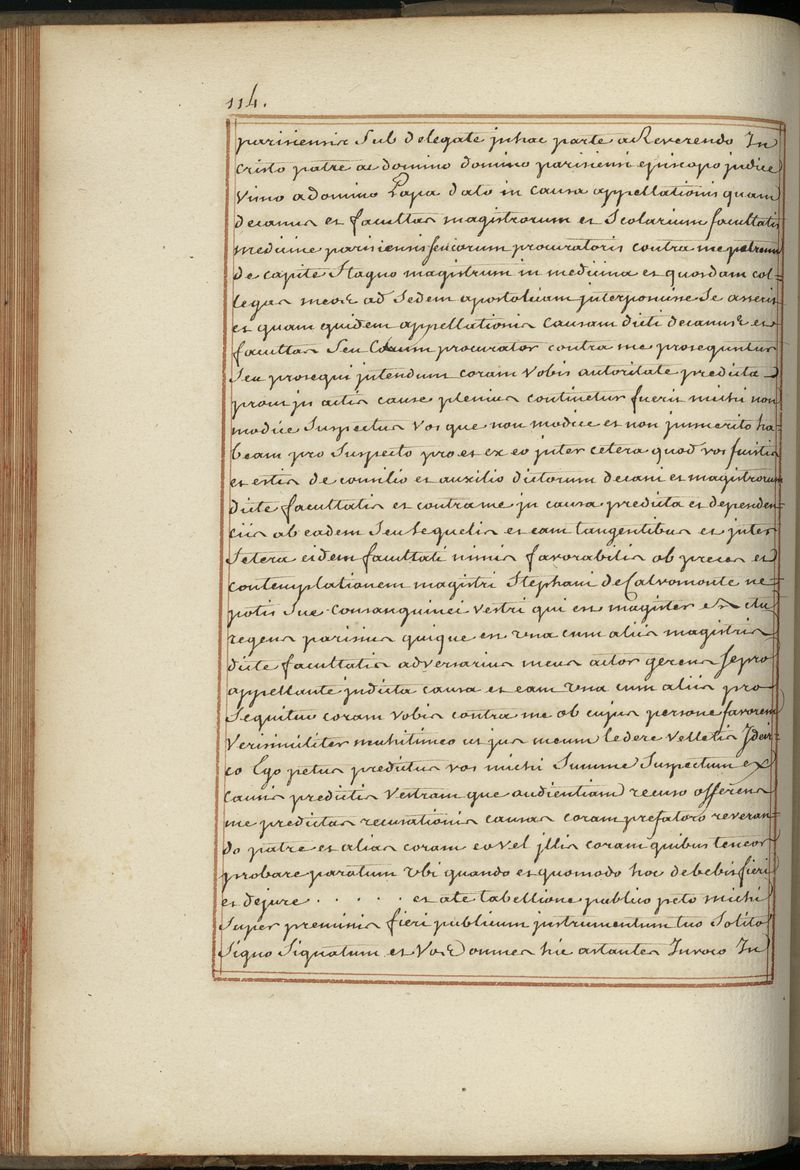 114.
parisiensis Sub delegate in hac parte a Reverendo In
Cristo patre ac domino domino parisiensi episcopo judice
Vimo a domino Papa dato in causa appellationis quam
decanus et facultas magistrorum et Scolarium facultatis
medicine parisiensis seu eorum procuratoris contra me petrum
de capite Stagno magistrum in medicina et quosdam col-
legas meos ad Sedem apostolicam interposuisse Se asserit
et quam quidem appellationis causam dicti decanus et
facultas Seu eorum procurator contra me prosequntur
Seu prosequi intendum coram vobis autoritate predicta
prout in actis cause plenius continetur fueris michi non
modice Suspectus vos que non modice et non immerito ha-
beam pro Suspecto pro et ex eo inter cetera quod vos fuistis
et estis de consilio et auxilio dictorum decani et magistrorum
dicte facultatis et contra me in causa predicta et dependen
ciis ab eadem Seu Sequelis et eam tangentibus et inter
Setera eidem facultati nimis favorabilis ob preces et
contemplationem magistri Stephani de Calvomonte ne-
potis Sue consanguinei vestri qui est magister et actu
regens parisius quique est una cum aliis magistris
dicte facultatis adversarius meus actor gerens se pro
appellante in dicta causa et eam una cum aliis pro-
Sequitur coram vobis contra me ob cujus persone favorem
Verisimiliter michi timeo ut jus meum ledere velletis Idcir-
co Ego petrus predictus vos michi Summe Suspectum ex
Causis predictis Vestram que audientiam recuso offerens
me predictas recusationis causas coram prefatoro reveran-
do patre et alias coram eo vel illis coram quibus teneor
probare paratum ubi quando et quomodo hoc debebit fieri
et de jure . . . . . et a te tabellione publico peto michi
Super premissis fieri publicum instrumentum tuo Solito
Signo Signatum et Vos omnes hic astantes Invoco In